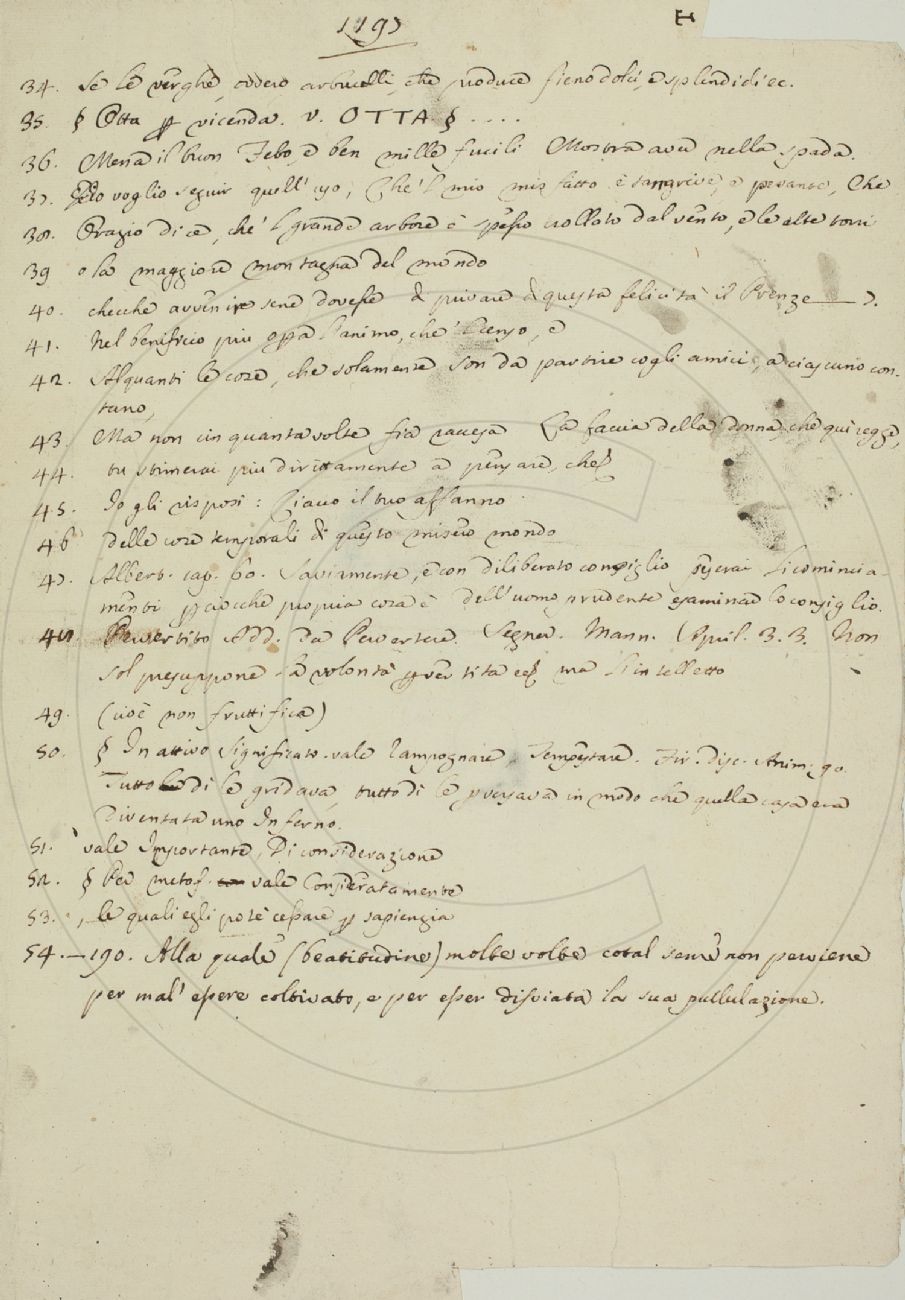 1197
34. se le verghe, ovvero arbucelli, che produce sieno dolci, e splendidi ec.
35. § Otta p vicenda. v. OTTA § ....
36. Mena il buon Febo, e ben mille fucili Mostra aver nella spada.
37. voglio seguir quell' uso, Che 'l mio misfatto è sangrive, e pesante, Che
38. Orazio dice, che 'l grande arbore è spesso crollato dal vento, e le alte torri
39 o la maggiore montagna del mondo
40. checche avvenire sene dovesse di privare di questa felicità il Prenze
41. Nel benificio più opa l'animo, che 'l censo, e
42. Alquanti le cose, che solamente son da partire cogli amici, a ciascuno con-
tano,
43. Ma non cinquanta volte fia raccesa La faccia della donna, che qui regge,
44. tu stimerai più dirittamente a pensare, che
45. Io gli risposi: Ciacco il tuo affanno
46 delle cose temporali di questo misero mondo
47. Albert. cap. 60. Saviamente, e con diliberato consiglio penserai li comincia-
menti pciocche propria cosa è dell'uomo prudente esaminare lo consiglio.
48 Pervertito Add. da Pervertere. Segner. Mann. April. 3. 3. Non
sol presuppone la volontà pvertita ma l'intelletto
49. (cioè non fruttifica)
50. § In attivo significato. vale Rampognare Tempestare. Fir. disc. Anim. 90.
Tutto di le gridava, tutto di le pversava in modo che quella casa era
diventata uno Inferno.
51. vale Importante, Di considerazione
52. § Per metaf. vale Consideratamente
53. , le quali egli potè cessare p sapienzia
54. — 190. Alla quale (beatitudine) molte volte cotal seme non perviene
per mal' essere coltivato, e per esser disviata la sua pullulazione.